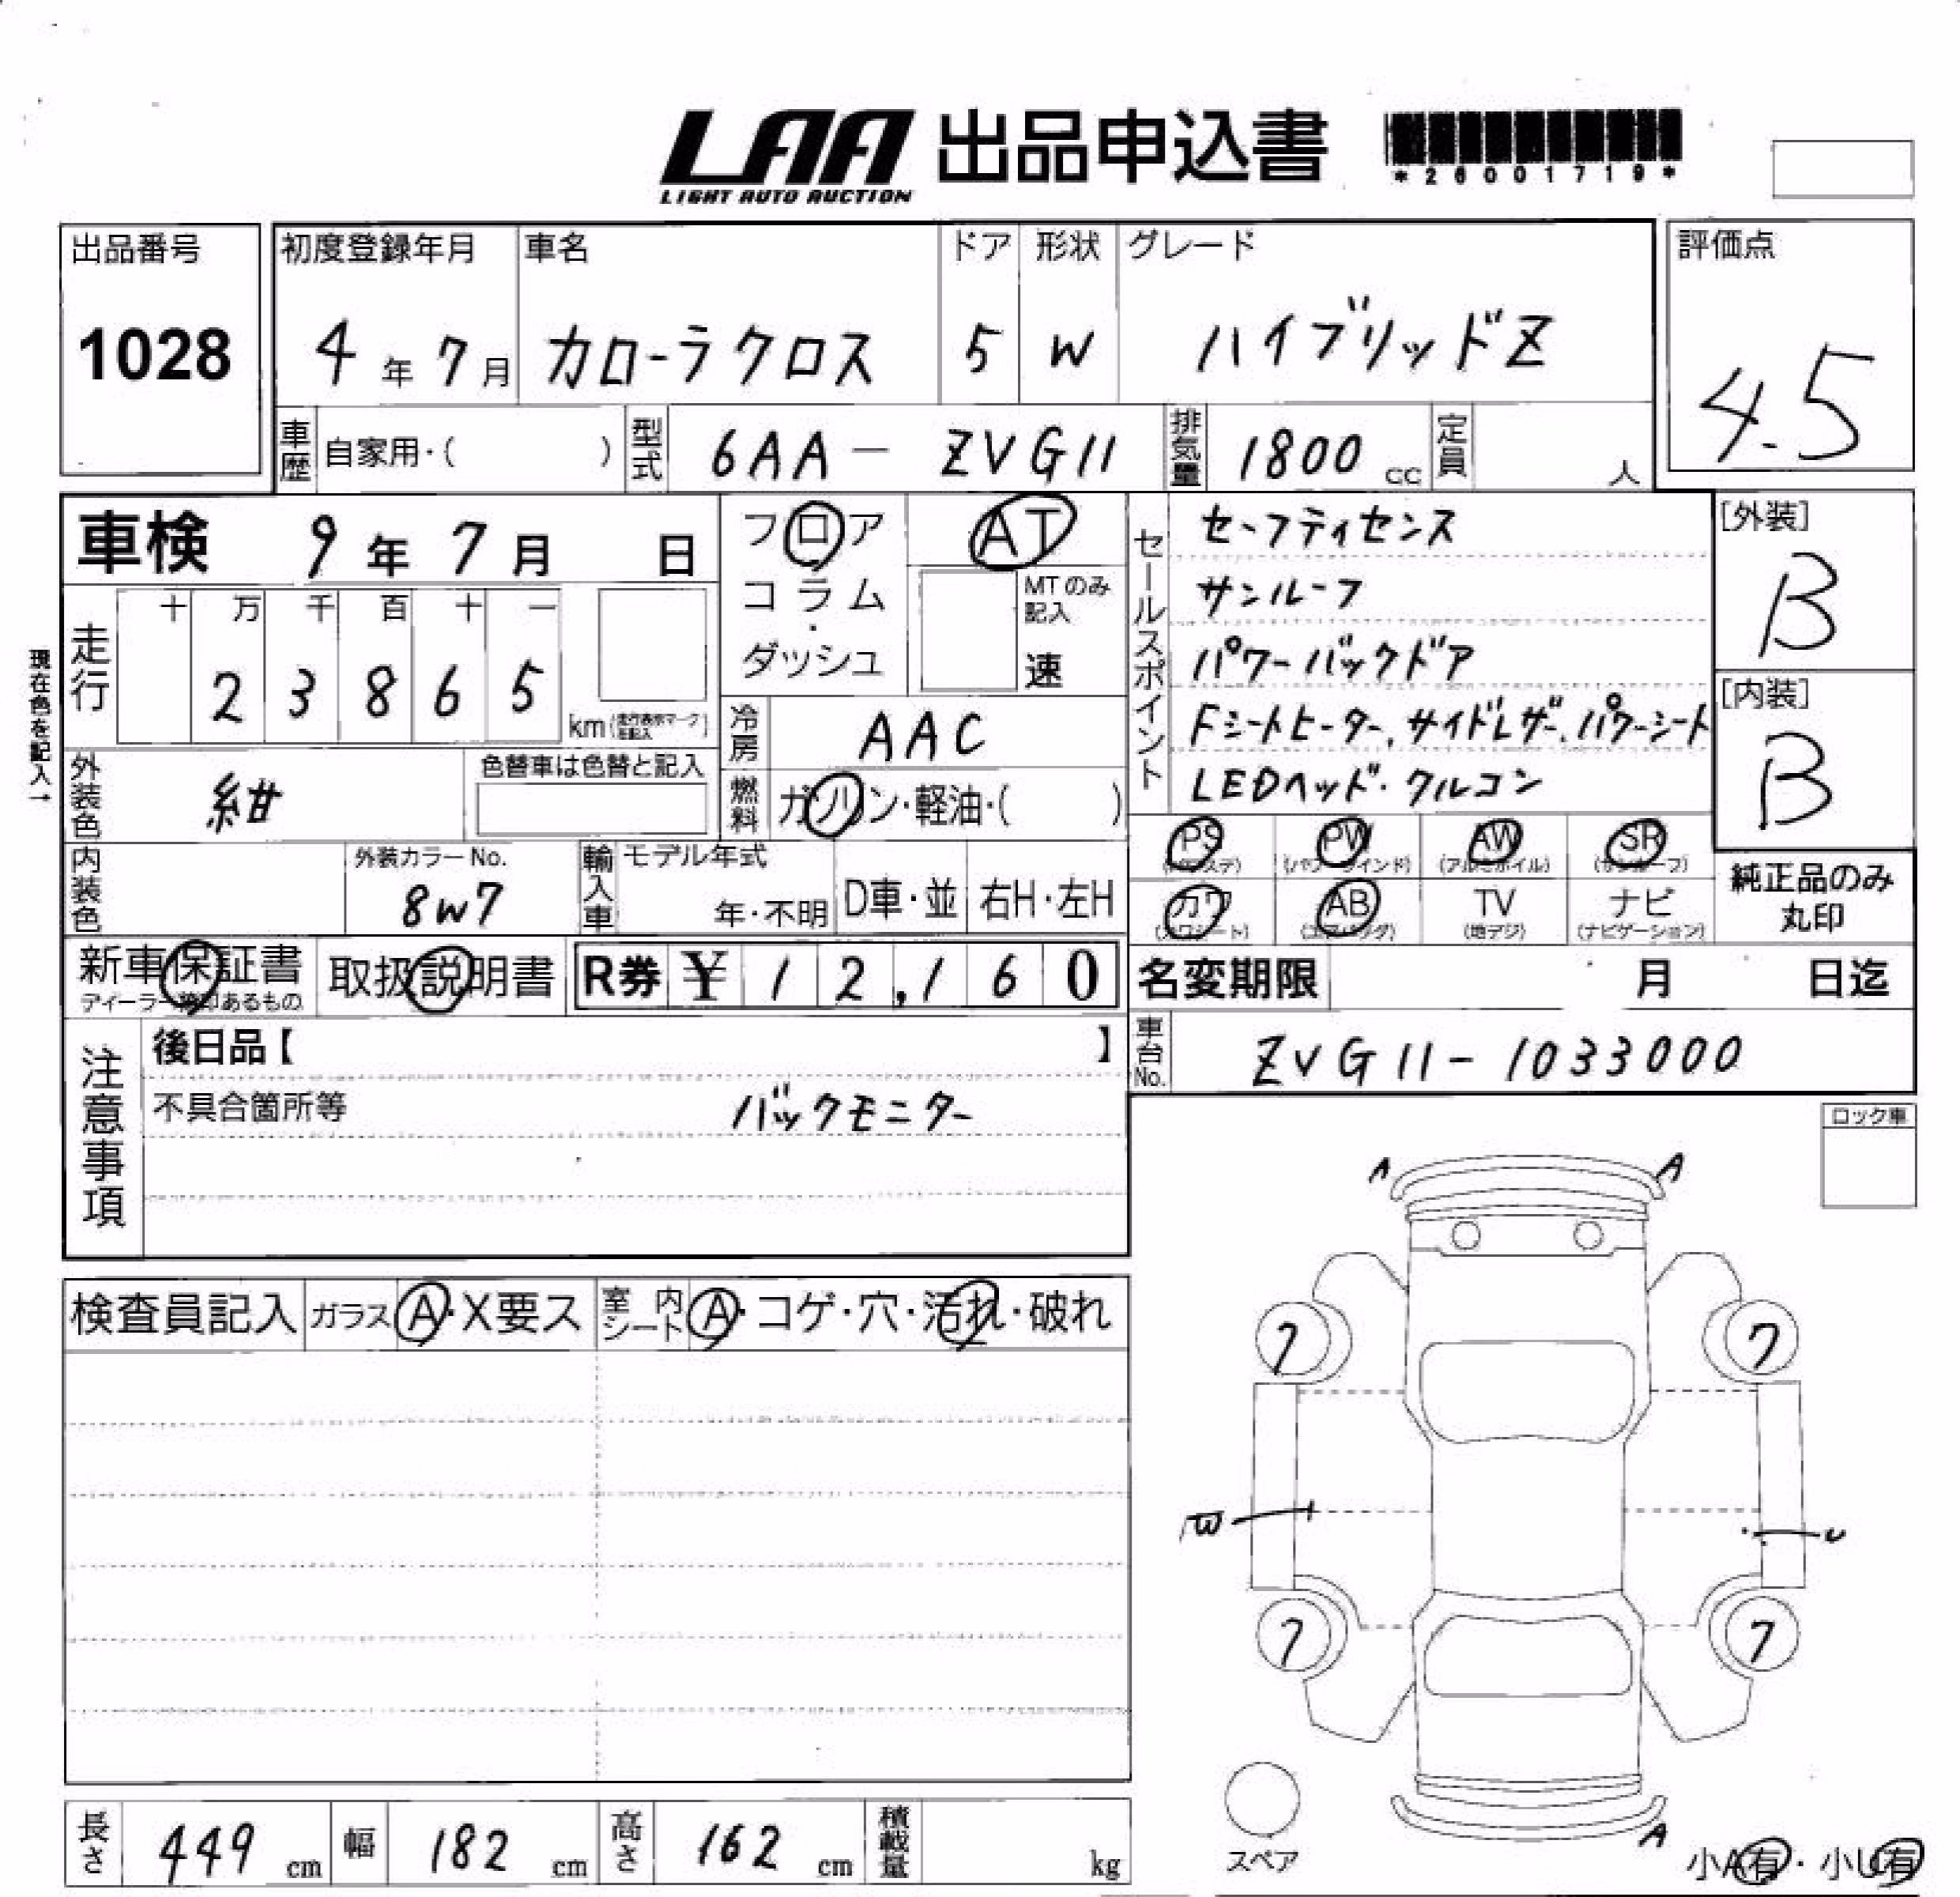 LAA 出品申込書
LIGHT AUTO AUCTION
*26001719*
出品番号 初度登録年月 車名 ドア 形状 グレード 評価点
1028 4年7月 カローラクロス 5 W ハイブリッドZ 4.5
車歴 自家用・( ) 型式 6AA- ZVG11 排気量 1800 cc 定員 人
車検 9年7月 日
フロア AT
コラム・ MTのみ記入
ダッシュ 速
現在色を記入→
走行 十 万 千 百 十 一
2 3 8 6 5 km
冷房 AAC
外装色 紺 色替車は色替と記入
燃料 ガソリン・軽油・( )
セールスポイント
セーフティセンス
サンルーフ
パワーバックドア
Fシートヒーター、サイドレザー、パワーシート
LEDヘッド・クルコン
[外装]
B
[内装]
B
内装色 外装カラーNo. 8W7
輸入車 モデル年式 年・不明 D車・並 右H・左H
PS PW (パワーウインド) AW (アルミホイル) SR (サンルーフ)
カワ (カワシート) AB (エアバッグ) TV (地デジ) ナビ (ナビゲーション)
純正品のみ
丸印
新車保証書 取扱説明書 R券 ¥ 1 2,1 6 0
名変期限 月 日迄
車台No. ZVG11-1033000
注意事項
後日品【 】
不具合箇所等 バックモニター
ロック車
検査員記入 ガラス A・X要ス 室内シート A・コゲ・穴・汚れ・破れ
A A
7 7
W U
7 7
A
スペア
小A有・小U有
長さ 449 cm 幅 182 cm 高さ 162 cm 積載量 kg